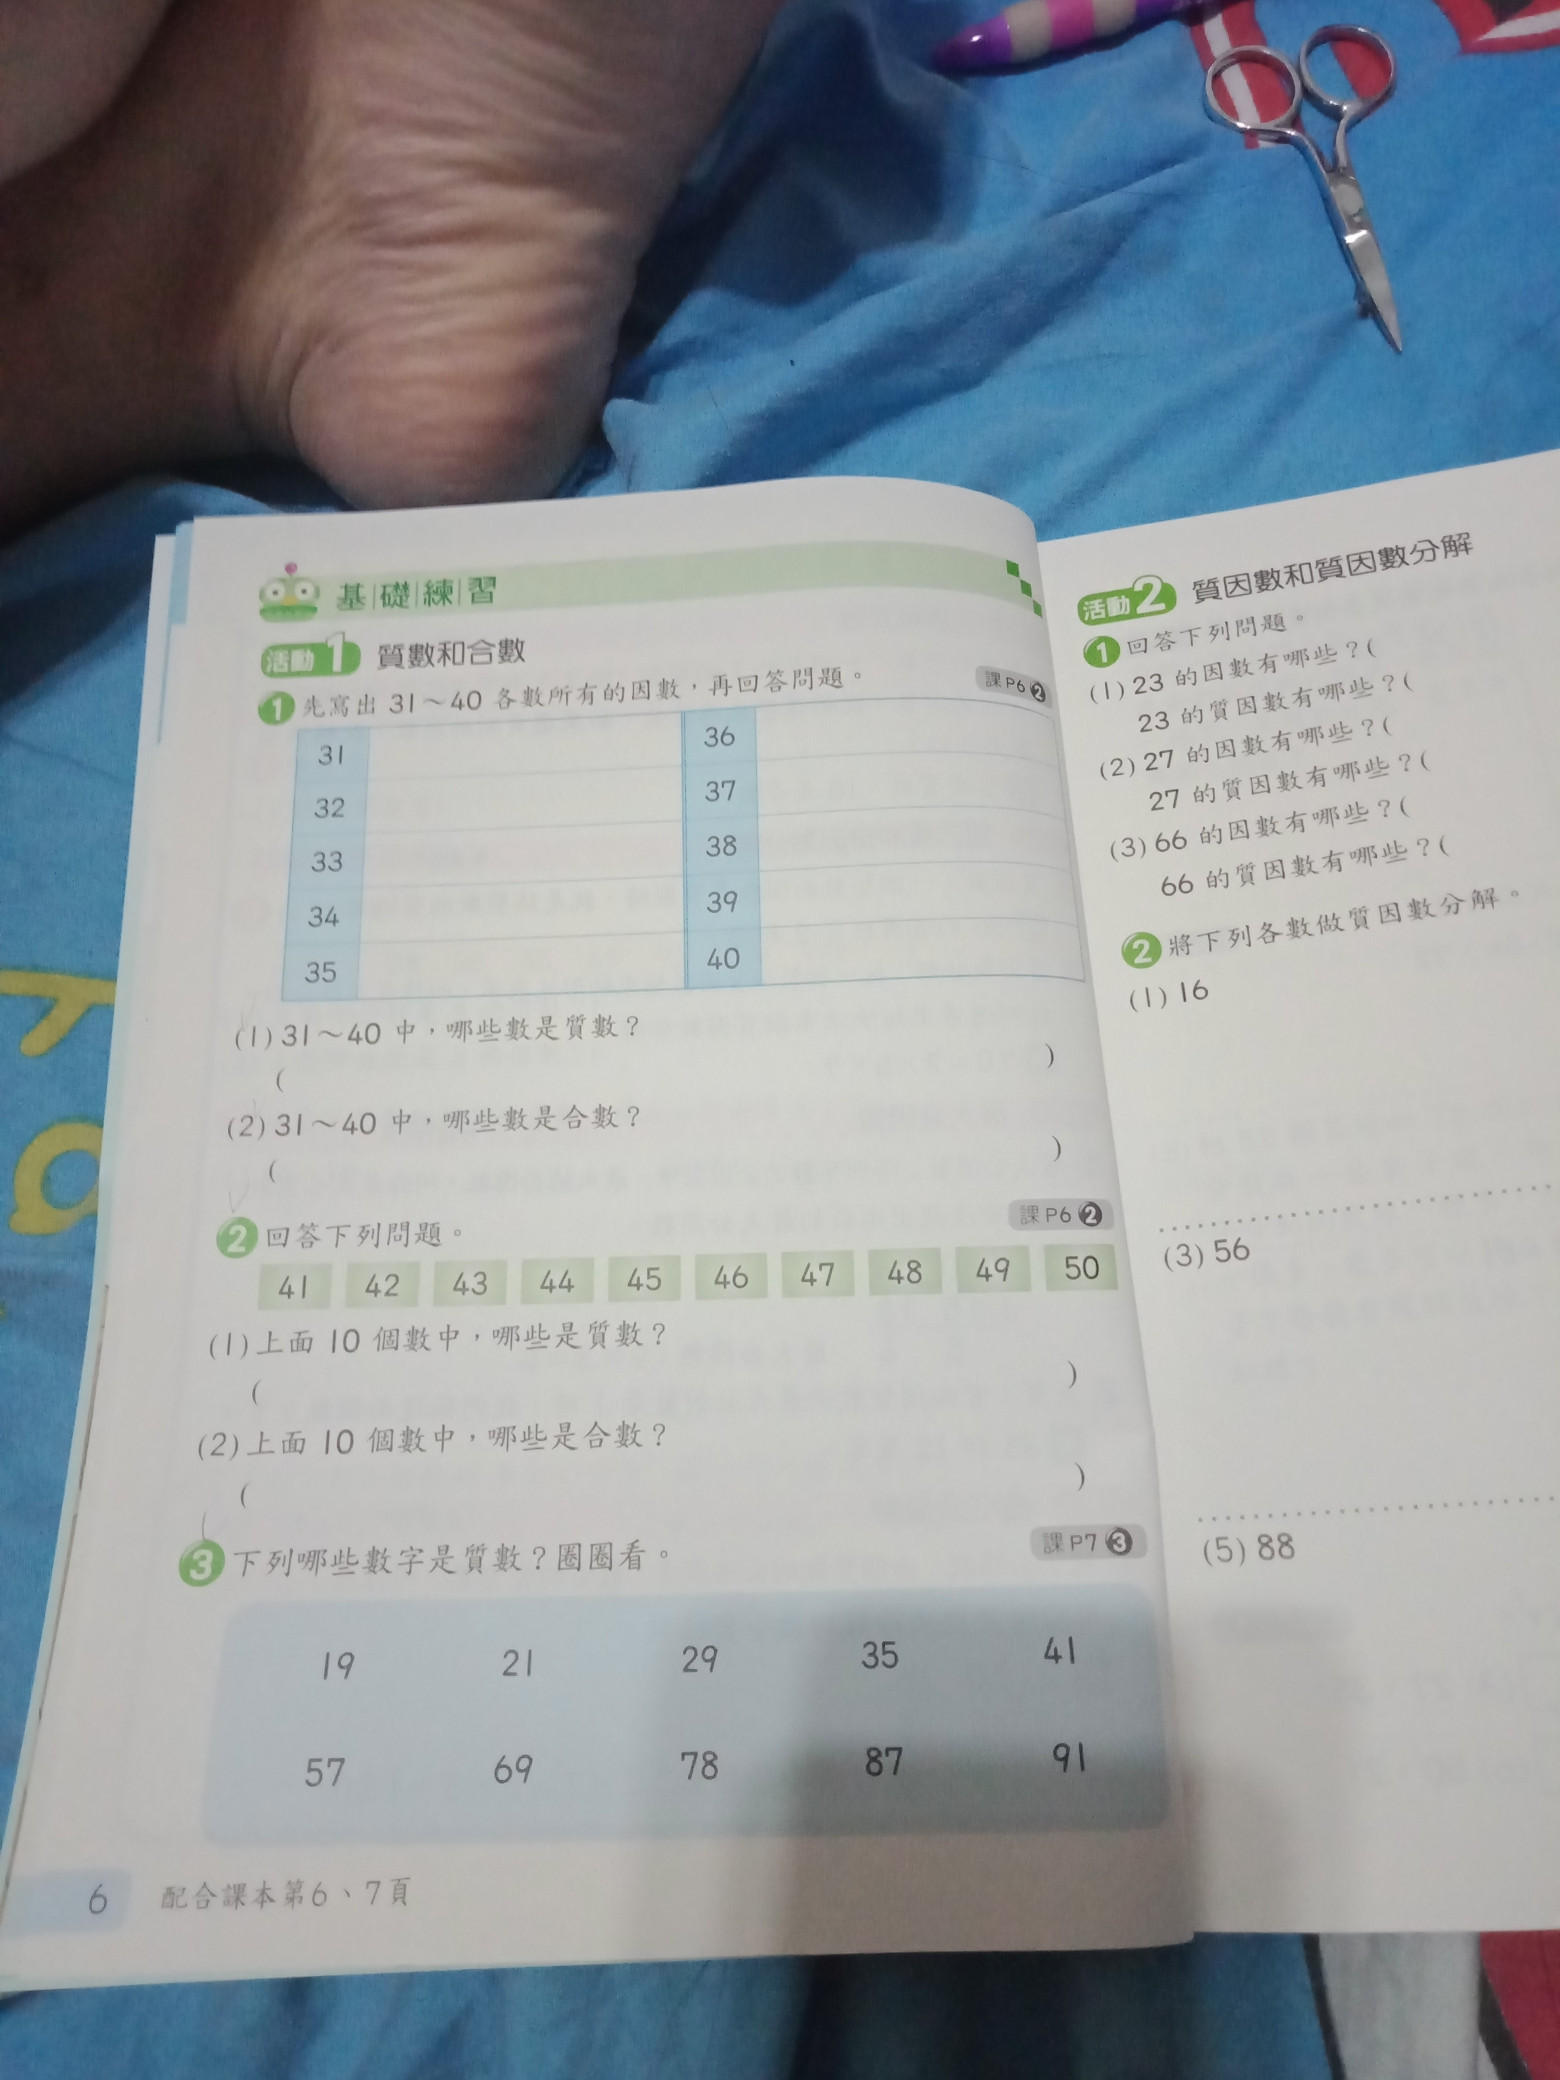 基礎練習
活動1 質數和合數
1 先寫出 31～40 各數所有的因數，再回答問題。 課P6 2
31 36
32 37
33 38
34 39
35 40
(1) 31～40 中，哪些數是質數？
( )
(2) 31～40 中，哪些數是合數？
( )
2 回答下列問題。 課P6 2
41 42 43 44 45 46 47 48 49 50
(1) 上面 10 個數中，哪些是質數？
( )
(2) 上面 10 個數中，哪些是合數？
( )
3 下列哪些數字是質數？圈圈看。 課P7 3
19 21 29 35 41
57 69 78 87 91
6 配合課本第6、7頁
活動2 質因數和質因數分解
1 回答下列問題。
(1) 23 的因數有哪些？(
23 的質因數有哪些？(
(2) 27 的因數有哪些？(
27 的質因數有哪些？(
(3) 66 的因數有哪些？(
66 的質因數有哪些？(
2 將下列各數做質因數分解。
(1) 16
(3) 56
(5) 88